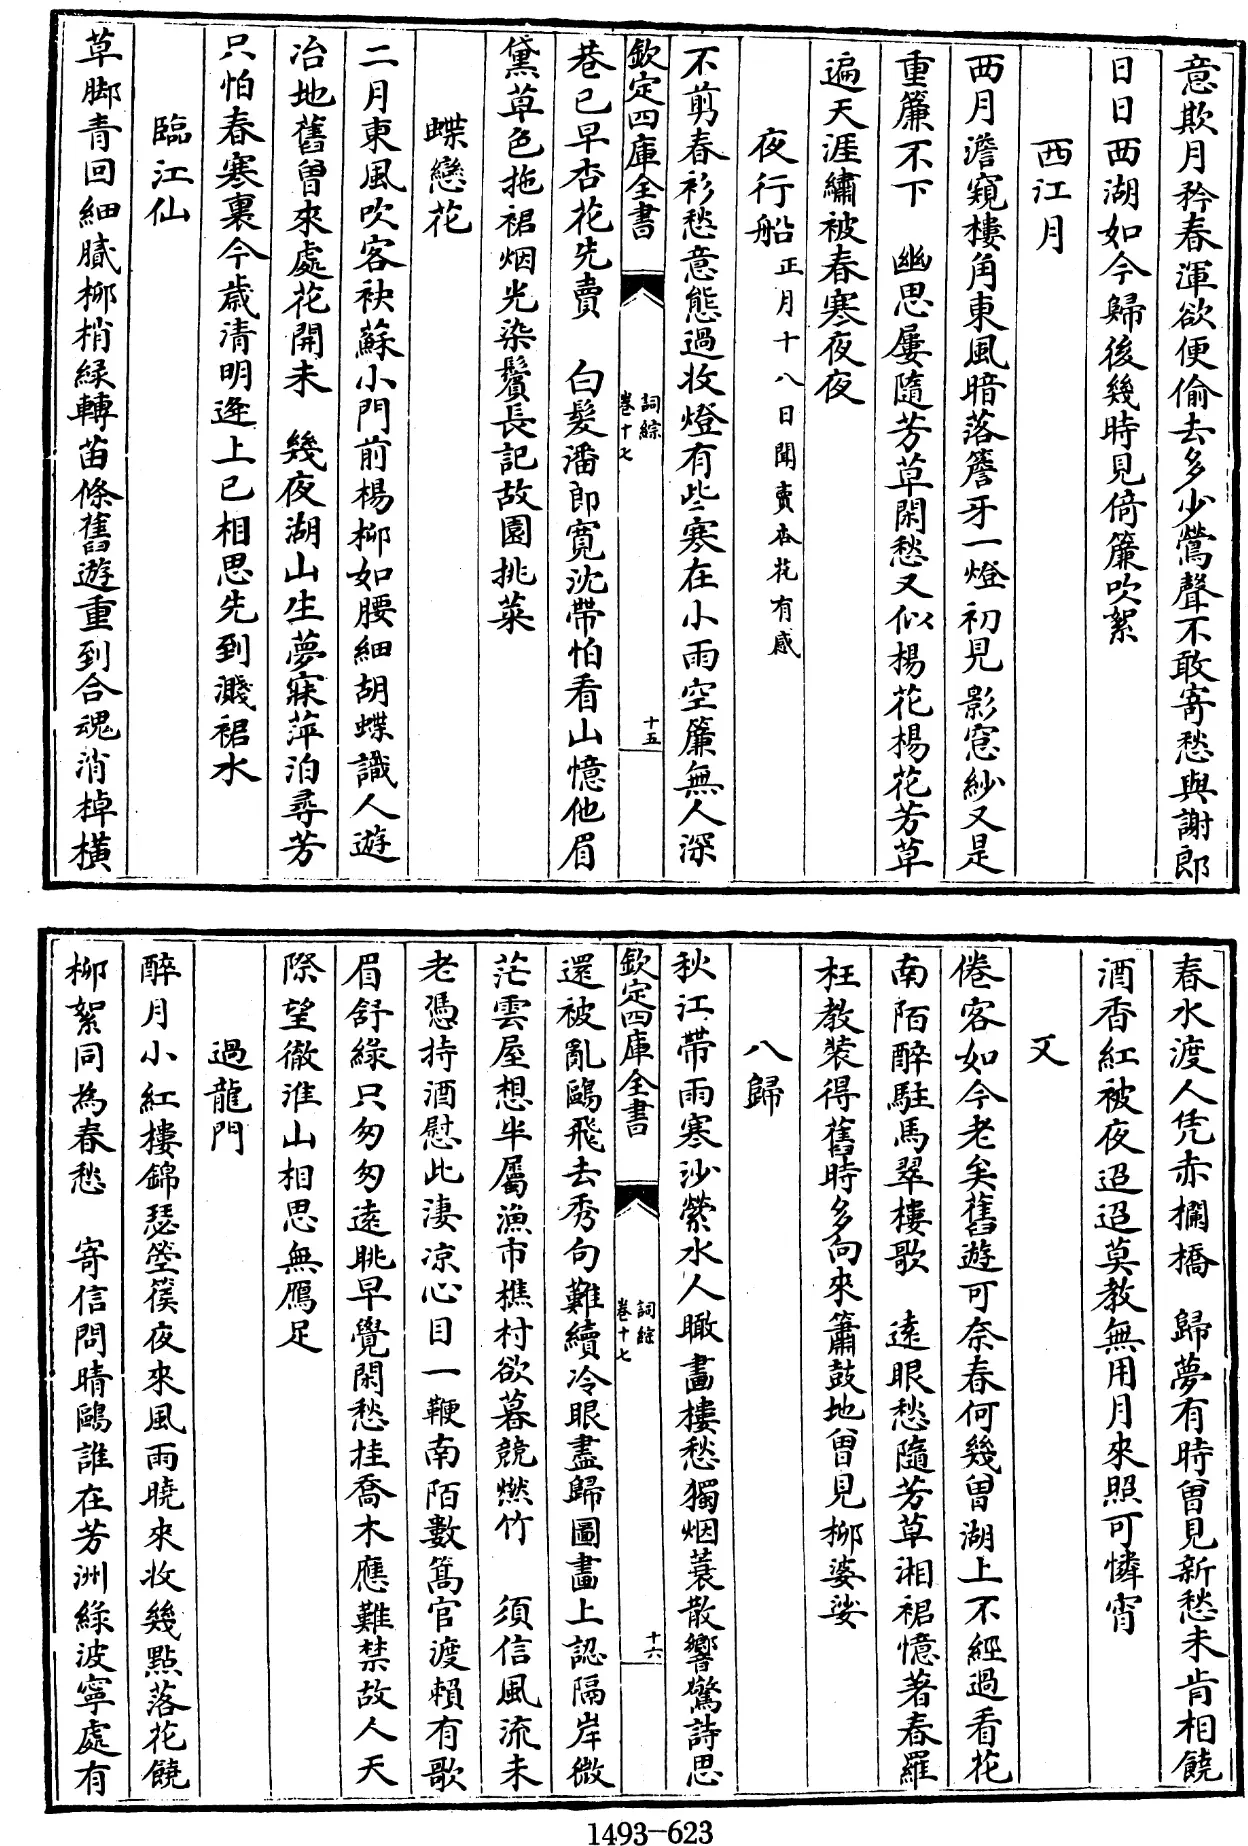 意欺月矜春渾欲便偷去多少鶯聲不敢寄愁與謝郎
日日西湖如今歸後幾時見倚簾吹絮
西江月
西月澹窺樓角東風暗落簷牙一燈初見影窓紗又是
重簾不下　幽思屢隨芳草閑愁又似楊花楊花芳草
遍天涯繡被春寒夜夜
夜行船正月十八日聞賣杏花有感
不剪春衫愁意態過收燈有些寒在小雨空簾無人深
欽定四庫全書
詞綜
卷十七
十五
巷已早杏花先賣　白髮潘郎寛沈帶怕看山憶他眉
黛草色拖裙烟光染鬢長記故園挑菜
蝶戀花
二月東風吹客袂蘇小門前楊柳如腰細胡蝶識人遊
冶地舊曽來處花開未　幾夜湖山生夢寐萍泊尋芳
只怕春寒裏今歲清明逢上已相思先到濺裙水
臨江仙
草脚青回細膩柳梢綠轉苗條舊遊重到合魂消棹橫
春水渡人凭赤欄橋　歸夢有時曽見新愁未肯相饒
酒香紅被夜迢迢莫教無用月來照可憐宵
又
倦客如今老矣舊遊可奈春何幾曽湖上不經過看花
南陌醉駐馬翠樓歌　遠眼愁隨芳草湘裙憶著春羅
枉教裝得舊時多向來簫鼓地曽見柳婆娑
八歸
秋江帶雨寒沙縈水人瞰畫樓愁獨烟蓑散響驚詩思
欽定四庫全書
詞綜
卷十七
十六
還被亂鷗飛去秀句難續冷眼盡歸圖畫上認隔岸微
茫雲屋想半屬漁市樵村欲暮競燃竹　須信風流未
老憑持酒慰此凄涼心目一鞭南陌數篙官渡賴有歌
眉舒綠只匆匆遠眺早覺閑愁挂喬木應難禁故人天
際望徹淮山相思無鴈足
過龍門
醉月小紅樓錦瑟箜篌夜來風雨曉來收幾點落花饒
柳絮同為春愁　寄信問晴鷗誰在芳洲綠波寧處有
1493-623